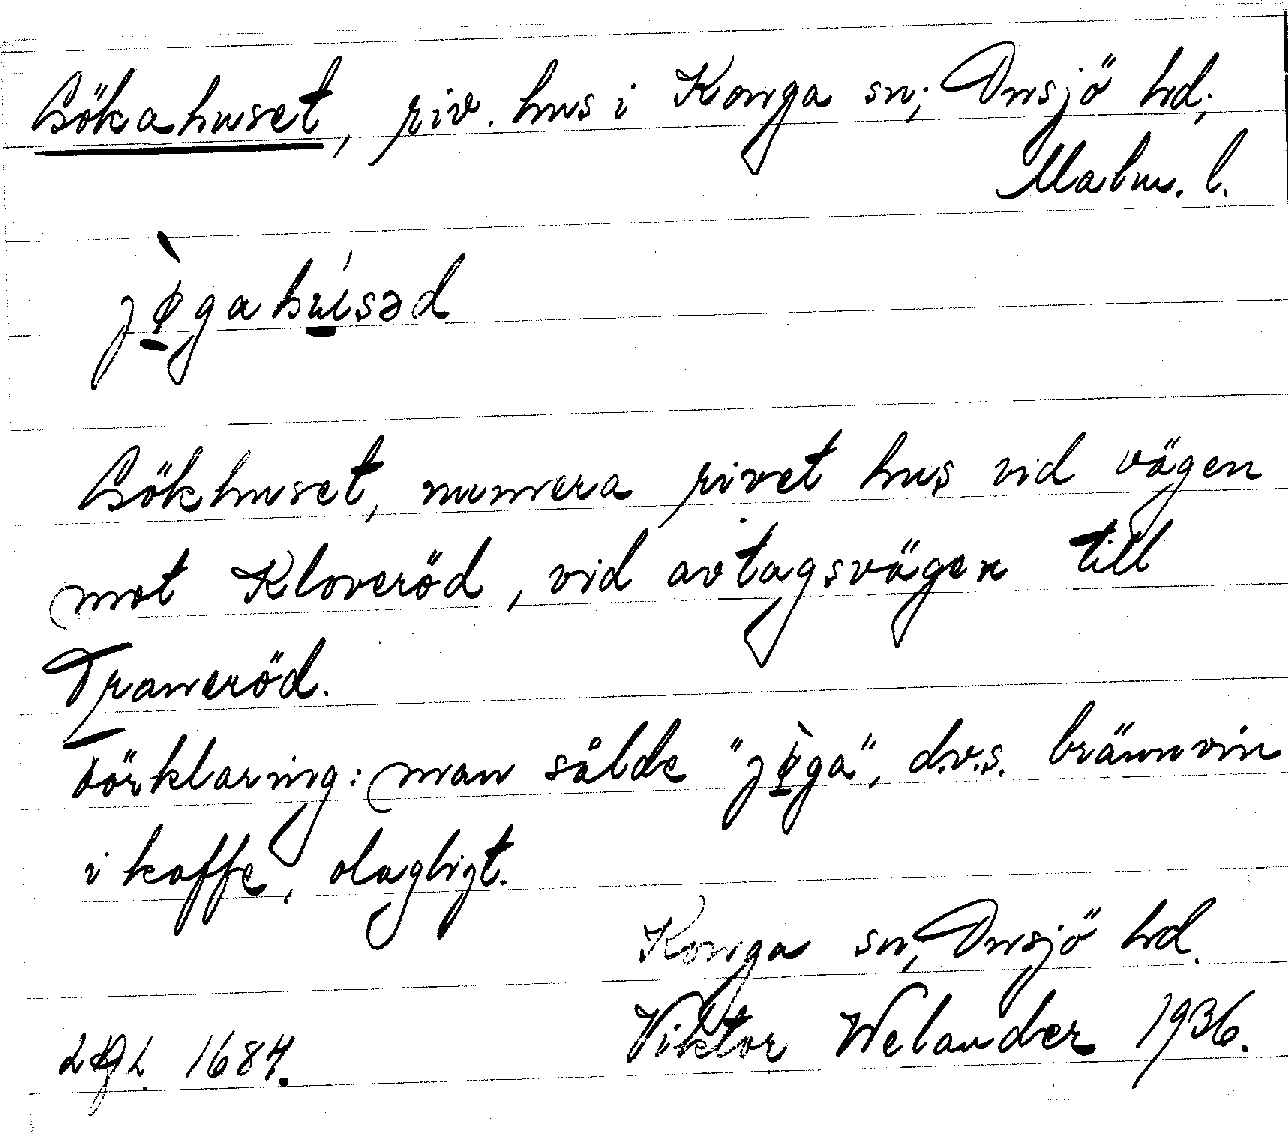 Gökahuset, riv. hus i Konga sn; Onsjö hd;
Malm. l.
jø̀gahúsəd
Gökhuset, numera rivet hus vid vägen
mot Kloveröd, vid avtagsvägen till
Traneröd.
Förklaring: man sålde "jø̀ga", d.v.s. brännvin
i kaffe, olagligt.
Konga sn, Onsjö hd.
Viktor Welander 1936.
1684.